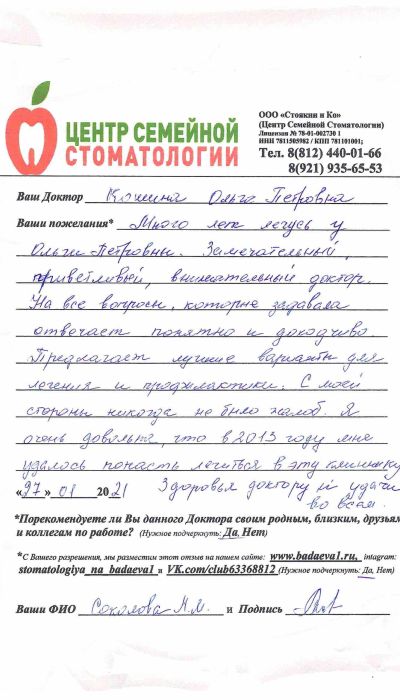 ЦЕНТР СЕМЕЙНОЙ
СТОМАТОЛОГИИ
ООО «Стоякин и Ко»
(Центр Семейной Стоматологии)
Лицензия № 78-01-002730 1
ИНН 7811505982 / КПП 781101001;
Тел. 8(812) 440-01-66
8(921) 935-65-53
Ваш Доктор Кошкина Ольга Петровна
Ваши пожелания* Много лет лечусь у
Ольги Петровны. Замечательный,
приветливый, внимательный доктор.
На все вопросы, которые задавала
отвечает понятно и доходчиво.
Предлагает лучшие варианты для
лечения и профилактики. С моей
стороны никогда не было жалоб. Я
очень довольна, что в 2013 году мне
удалось попасть лечиться в эту клинику
«27» 01 2021 Здоровья доктору и удачи
во всем.
*Порекомендуете ли Вы данного Доктора своим родным, близким, друзьям
и коллегам по работе? (Нужное подчеркнуть: Да, Нет)
*С Вашего разрешения, мы разместим этот отзыв на нашем сайте: www.badaeva1.ru, intagram:
stomatologiya_na_badaeva1 и VK.com/club63368812 (Нужное подчеркнуть: Да, Нет)
Ваши ФИО Соколова Н.М. и Подпись